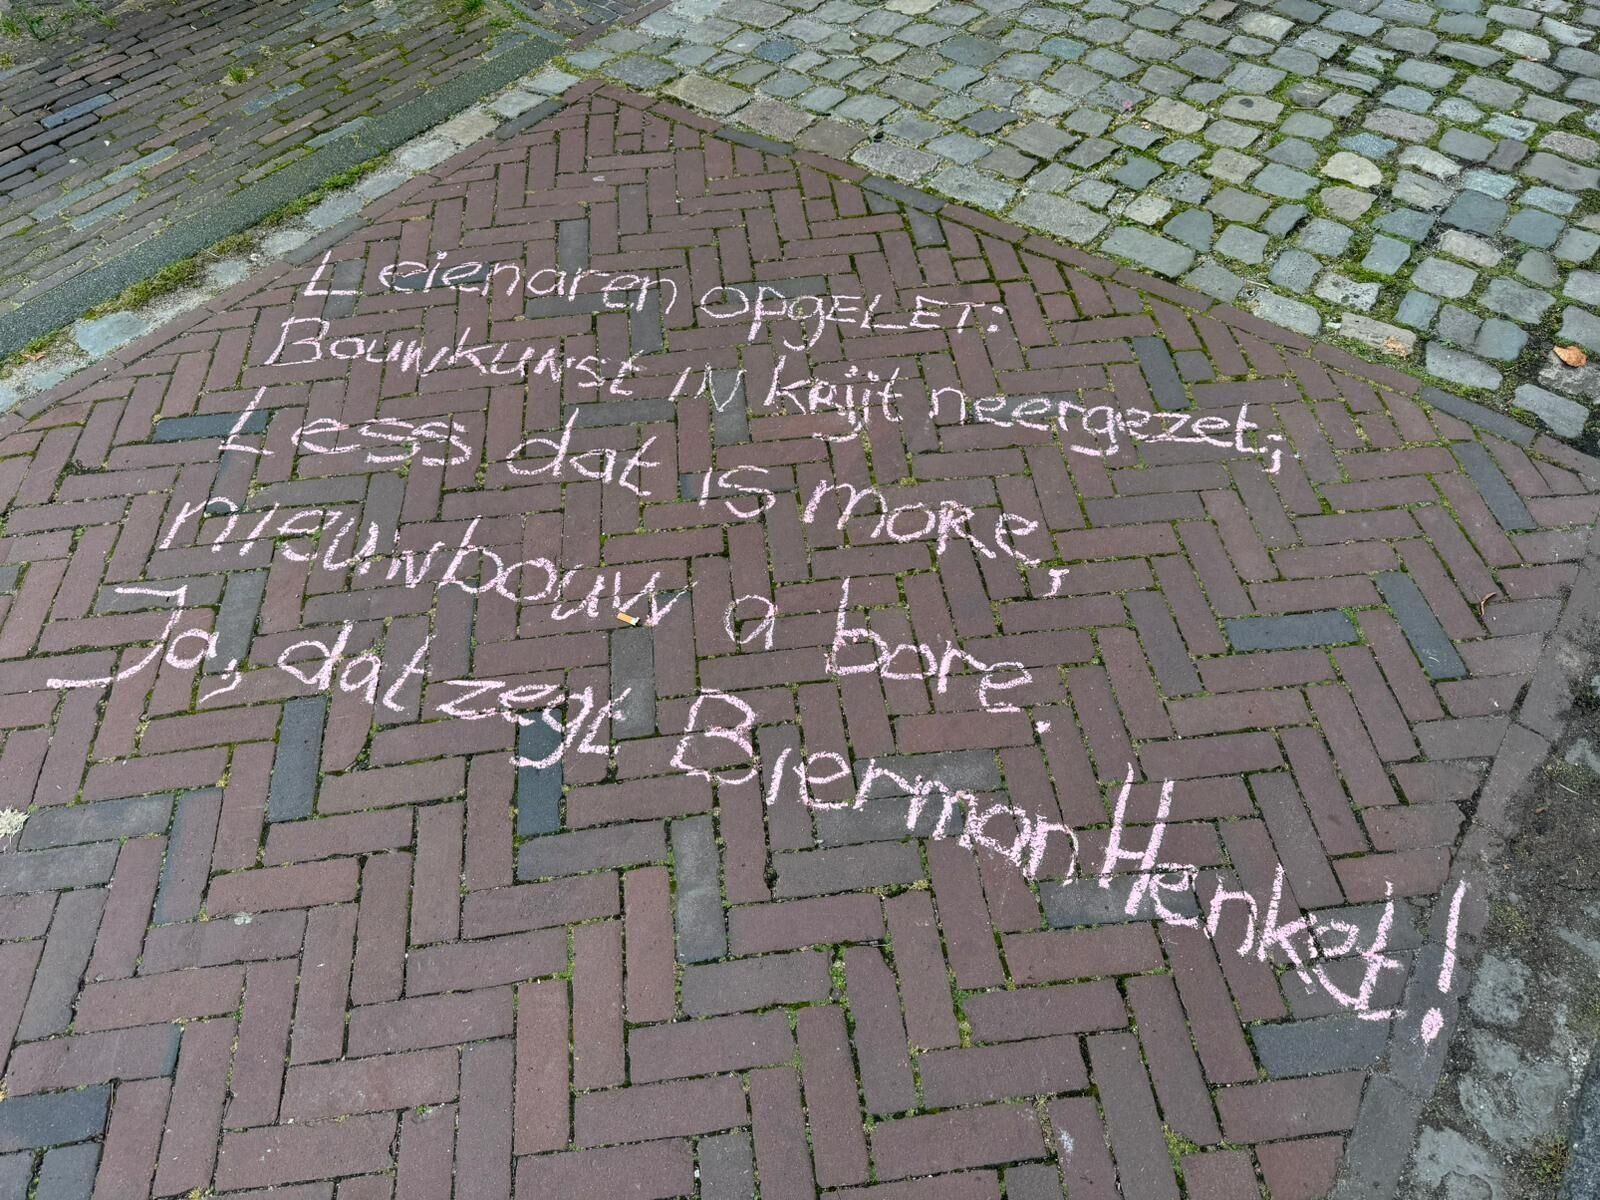 Leienaren opgELET:
Bouwkunst IN krijt neergezet;
Less dat is more,
nieuwbouw a bore.
Ja, dat zegt Bierman Henket!